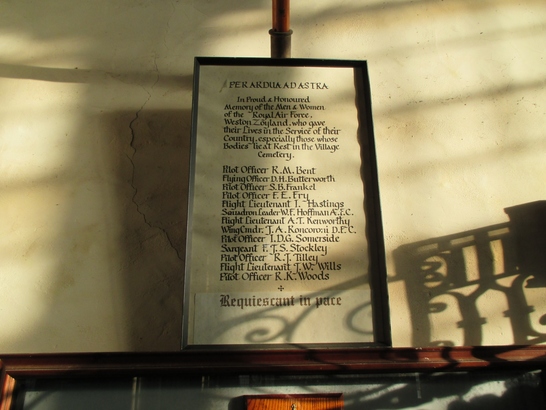 PER ARDUA AD ASTRA
In Proud & Honoured
Memory of the Men & Women
of the Royal Air Force,
Weston Zoyland, who gave
their Lives in the Service of their
Country, especially those whose
Bodies lie at Rest in the Village
Cemetery.
Pilot Officer R.M. Bent
Flying Officer D.H. Butterworth
Pilot Officer S.B. Frankel
Pilot Officer F.E. Fry
Flight Lieutenant I. Hastings
Squadron Leader W.F. Hoffman A.F.C.
Flight Lieutenant A.T. Kenworthy
Wing Cmdr. J.A. Roncoroni D.F.C.
Pilot Officer I.D.G. Somerside
Sargeant F.J.S. Stockley
Pilot Officer R.J. Tilley
Flight Lieutenant J.W. Wills
Pilot Officer R.K. Woods
Requiescant in pace